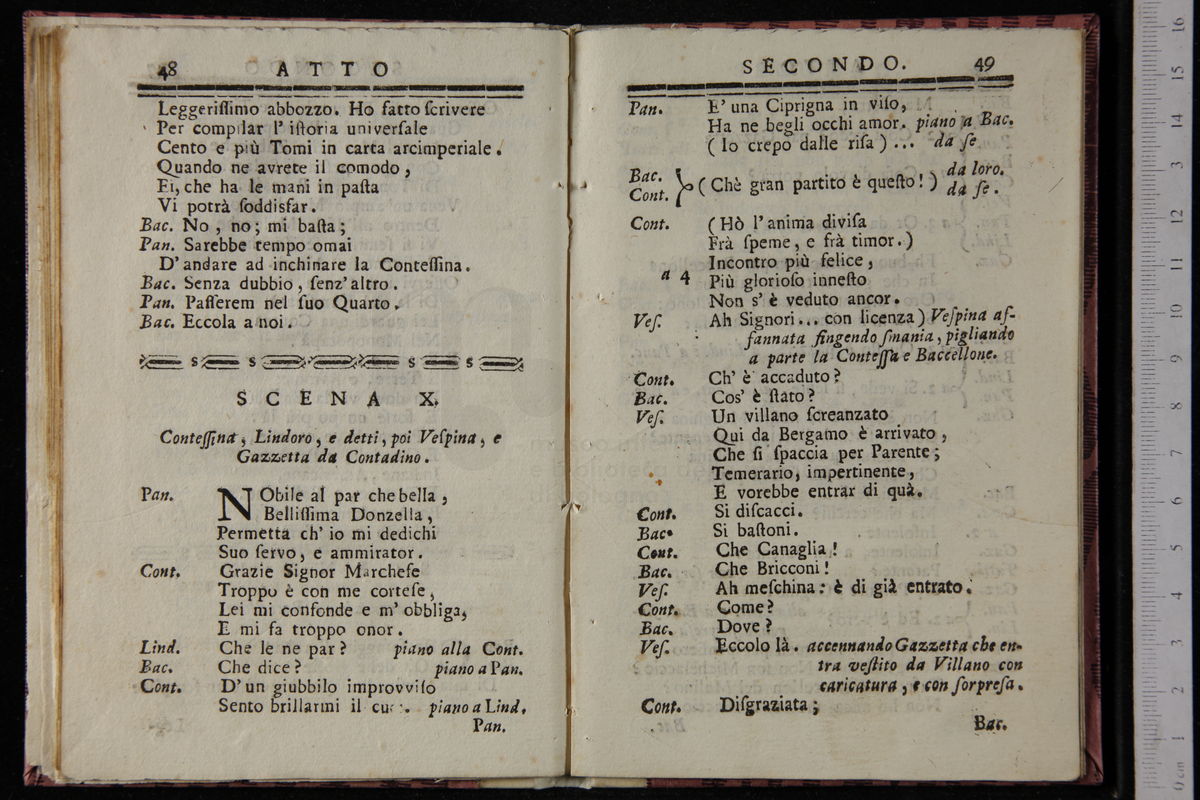 48 ATTO
Leggeriſſimo abbozzo. Ho fatto ſcrivere
Per compilar l' iſtoria univerſale
Cento e più Tomi in carta arcimperiale.
Quando ne avrete il comodo,
Ei, che ha le mani in paſta
Vi potrà ſoddisfar.
Bac. No, no; mi baſta;
Pan. Sarebbe tempo omai
D'andare ad inchinare la Conteſſina.
Bac. Senza dubbio, ſenz'altro.
Pan. Paſſerem nel ſuo Quarto.
Bac. Eccola a noi.
SCENA X.
Conteſſina, Lindoro, e detti, poi Veſpina, e
Gazzetta da Contadino.
Pan. NObile al par che bella,
Belliſſima Donzella,
Permetta ch' io mi dedichi
Suo ſervo, e ammirator.
Cont. Grazie Signor Marcheſe
Troppo è con me corteſe,
Lei mi confonde e m' obbliga,
E mi fa troppo onor.
Lind. Che le ne par? piano alla Cont.
Bac. Che dice? piano a Pan.
Cont. D' un giubbilo improvviſo
Sento brillarmi il piano a Lind.
Pan.
SECONDO. 49
Pan. E' una Ciprigna in viſo,
Ha ne begli occhi amor. piano a Bac.
(Io crepo dalle riſa)... da ſe
Bac. da loro.
(Chè gran partito è queſto!)
Cont. da ſe.
Cont. (Hò l'anima diviſa
Frà ſpeme, e frà timor.)
Incontro più felice,
a 4 Più glorioſo inneſto
Non s' è veduto ancor.
Veſ. Ah Signori... con licenza) Veſpina af-
fannata fingendo ſmania, pigliando
a parte la Conteſſa e Baccellone.
Cont. Ch' è accaduto?
Bac. Cos' è ſtato?
Veſ. Un villano ſcreanzato
Qui da Bergamo è arrivato,
Che ſi ſpaccia per Parente;
Temerario, impertinente,
E vorebbe entrar di quà.
Cont. Si diſcacci.
Bac. Si baſtoni.
Cont. Che Canaglia!
Bac. Che Bricconi!
Veſ. Ah meſchina: è di già entrato.
Cont. Come?
Bac. Dove?
Veſ. Eccolo là. accennando Gazzetta che en-
tra veſtito da Villano con
caricatura, e con ſorpreſa.
Cont. Diſgraziata;
Bac.